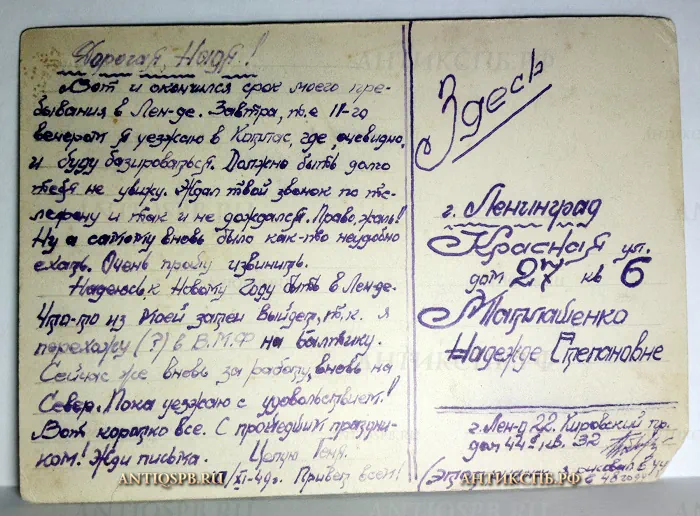 Дорогая Надя!
Вот и окончился срок моего пре-
бывания в Лен-де. Завтра, т.е 11-го
вечером я уезжаю в Котлас, где, очевидно,
и буду базироваться. Должно быть долго
тебя не увижу. Ждал твой звонок по те-
лефону и так и не дождался. Право, жаль!
Ну а самому вновь было как-то неудобно
ехать. Очень прошу извинить.
Надеюсь, к Новому году быть в Лен-де.
Что-то из моей затеи выйдет, т.к. я
перехожу (?) в В.М.Ф на балтику.
Сейчас же вновь за работу, вновь на
Север. Пока уезжаю с удовольствием!
Вот коротко все. С прошедшим праздни-
ком! Жди письма. Целую Геня.
/XI-49г. Привет всем!
Здесь
г. Ленинград
Красная ул.
дом 27 кв 6
Матлашенко
Надежде Степановне
г. Лен-д 22. Кировский пр.
дом 44а, кв. 32
рисовал в 44
48 году
ANTIQSPB.RU
АНТИКСПБ.РФ